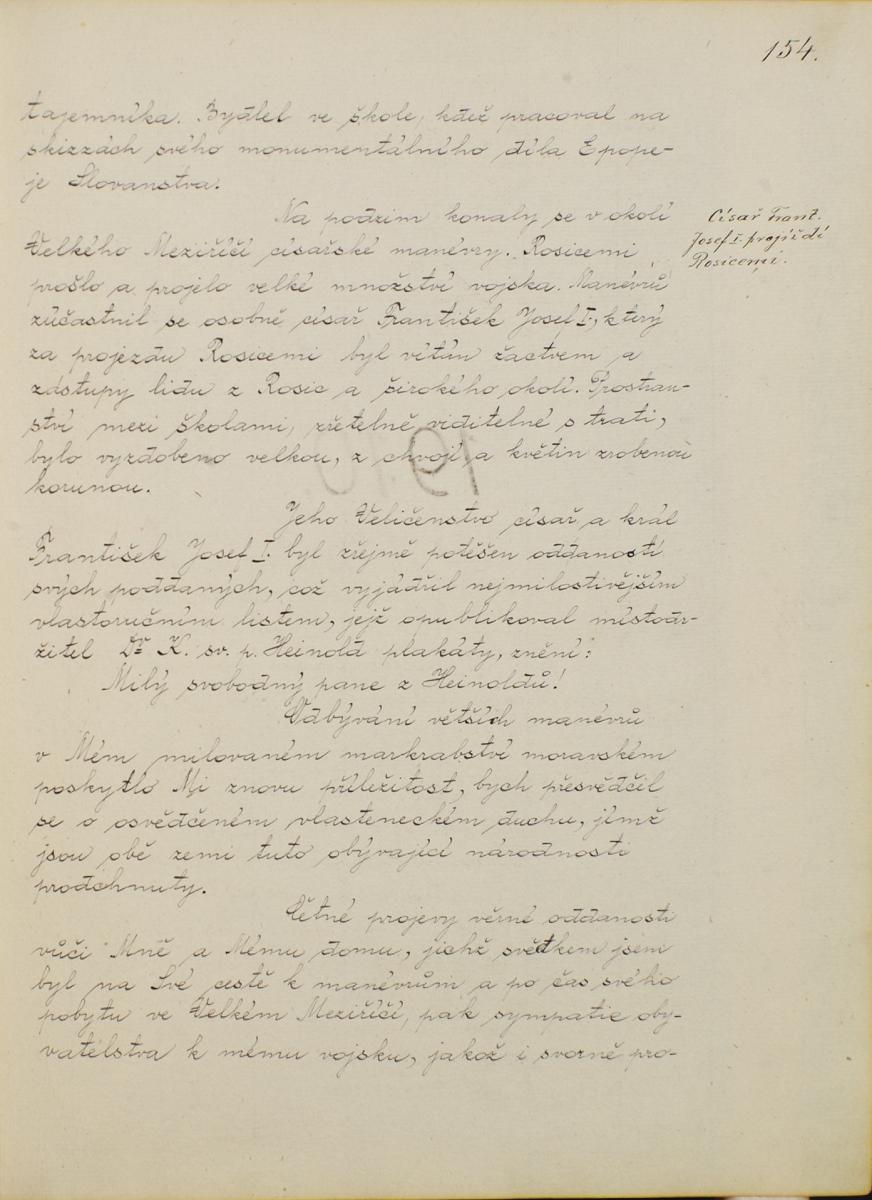 154.
tajemníka. Bydlel ve škole, kdež pracoval na
skizzách svého monumentálního díla Epope-
je Slovanstva.
Na podzim konaly se v okolí
Velkého Meziříčí císařské manévry. Rosicemi
prošlo a projelo velké množství vojska. Manévrů
zúčastnil se osobně císař František Josef I., který
za projezdu Rosicemi byl vítán žactvem a
zástupy lidu z Rosic a širokého okolí. Prostran-
ství mezi školami, zřetelně viditelné s trati,
bylo vyzdobeno velkou, z chvojí a květin zrobenou
korunou.
Císař Frant.
Josef I. projíždí
Rosicemi.
Jeho Veličenstvo císař a král
František Josef I. byl zřejmě potěšen oddaností
svých poddaných, což vyjádřil nejmilostivějším
vlastoručním listem, jejž opublikoval místodr-
žitel Dr K. sv. p. Heinold plakáty, znění:
Milý svobodný pane z Heinoldů!
Odbývání větších manévrů
v Mém milovaném markrabství moravském
poskytlo Mi znovu příležitost, bych přesvědčil
se o osvědčeném vlasteneckém duchu, jímž
jsou obě zemi tuto obývající národnosti
prodchnuty.
Četné projevy věrné oddanosti
vůči Mně a Mému domu, jichž svědkem jsem
byl na Své cestě k manévrům a po čas svého
pobytu ve Velkém Meziříčí, pak sympatie oby-
vatelstva k mému vojsku, jakož i svorně pro-